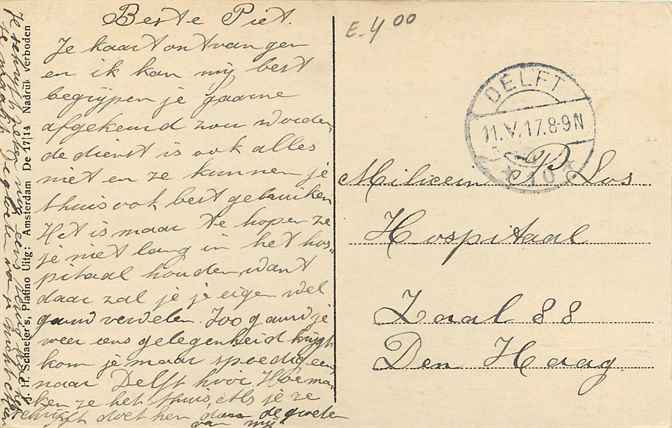 Beste Piet.
Je kaart ontvangen
en ik kan mij best
begrijpen je gaarne
afgekeurd zou worden
de dienst is ook alles
niet en ze kunnen je
thuis ook best gebruiken
Het is maar te hopen ze
je niet lang in het hos-
pitaal houden want
daar zal je je eigen wel
gauw vervelen Zoo gauw je
weer eens gelegenheid krijgt
kom je maar spoedig een
naar Delft hoor Hoe ma
ken ze het thuis, als je ze
schrijft doet hen de groeten
van mij
J. H. Schaefer's, Platino Uitg: Amsterdam De 17|14 Nadruk verboden
E. 4 00
DELFT
11.V.17.8-9N
Milicien P Los
Hospitaal
Zaal 88
Den Haag.